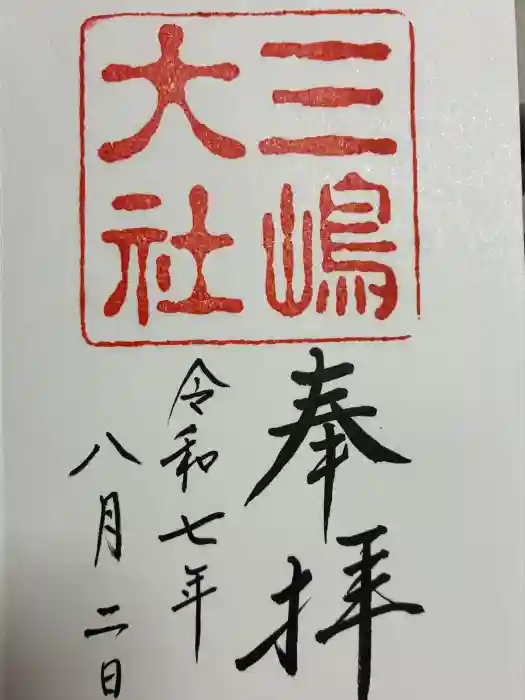 三嶋
大社
奉拝
令和七年
八月二日